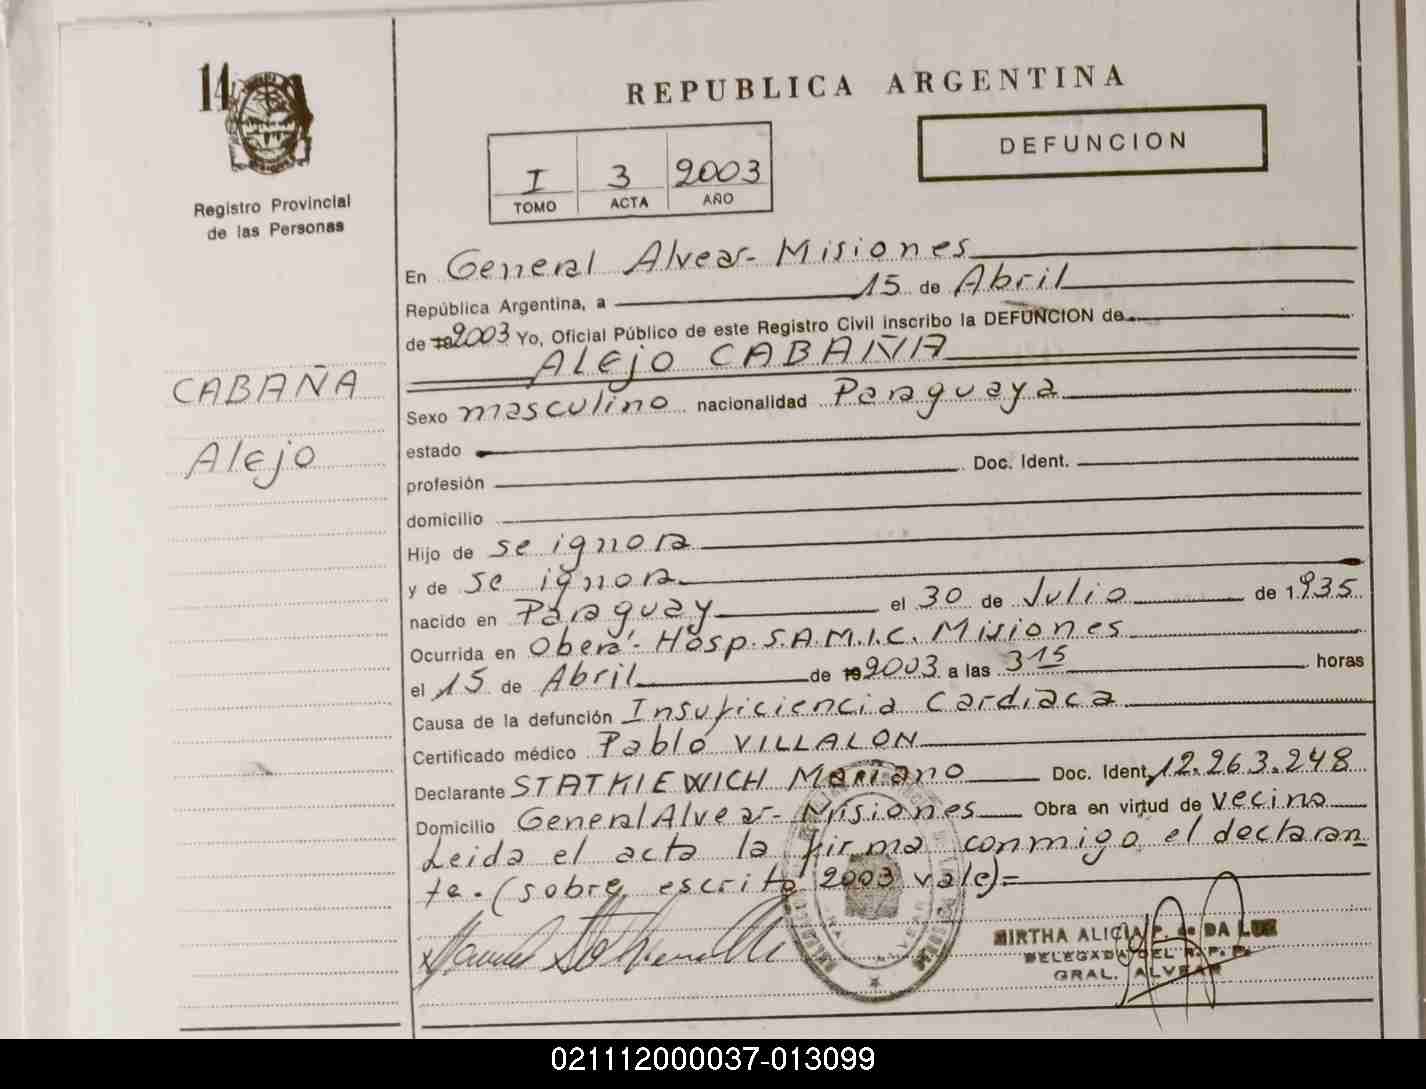 14
Registro Provincial
de las Personas
CABAÑA
Alejo
REPUBLICA ARGENTINA
DEFUNCION
I 3 2003
TOMO ACTA AÑO
En General Alvear - Misiones
República Argentina, a 15 de Abril
de 2003 Yo, Oficial Público de este Registro Civil inscribo la DEFUNCION de
Alejo CABAÑA
Sexo masculino nacionalidad Paraguaya
estado
profesión Doc. Ident.
domicilio
Hijo de se ignora
y de se ignora
nacido en Paraguay el 30 de Julio de 1935
Ocurrida en Oberá - Hosp. S.A.M.I.C. Misiones
el 15 de Abril de 2003 a las 3 15 horas
Causa de la defunción Insuficiencia Cardiaca
Certificado médico Pablo VILLALON
Declarante STATKIEWICH Mariano Doc. Ident. 12.263.248
Domicilio General Alvear - Misiones Obra en virtud de vecino
Leida el acta la firma conmigo el declaran
te. (sobre escrito 2003 vale)=
MIRTHA ALICIA P. de DA LUZ
DELEGADA DEL R. P. P.
GRAL. ALVEAR
021112000037-013099